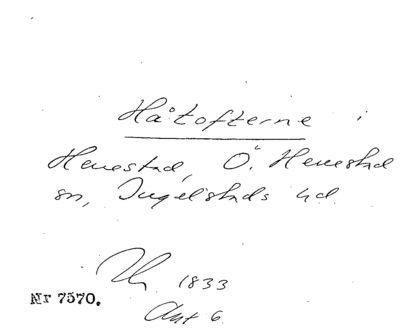 Håtofterne i
Herrestad, Ö. Herrestad
sn, Ingelstads hd.
1833
Nr 7570.
Akt 6